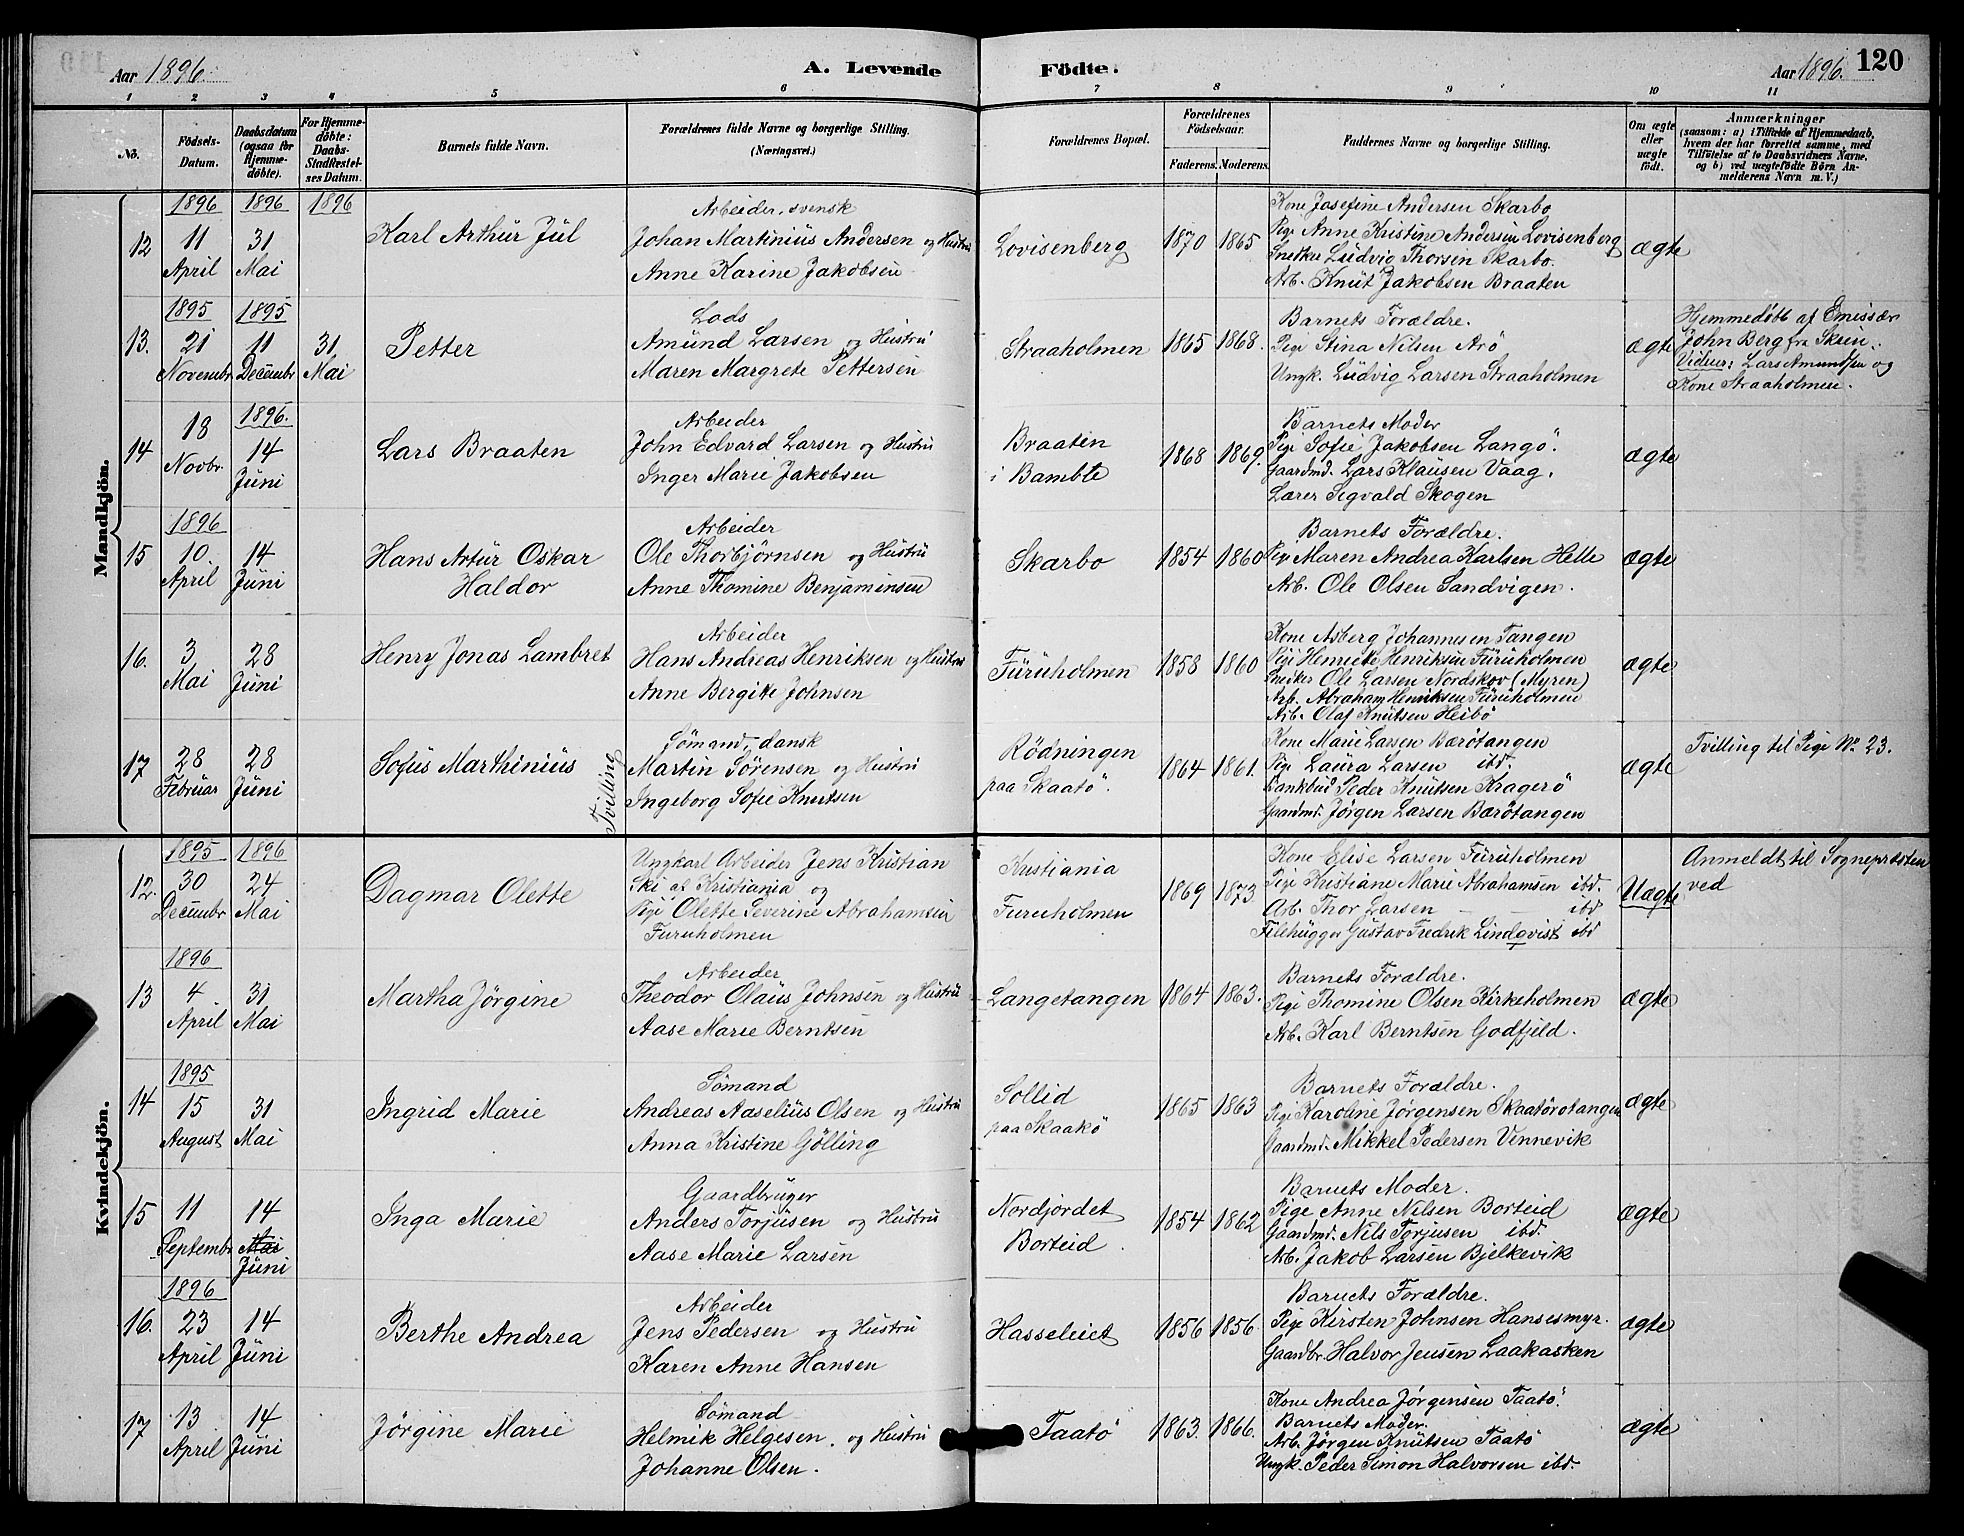 Aar 1896. A. Levende Födte. Aar 1896. 120
1 2 3 4 5 6 7 8 9 10 11
No. Födsels-Datum. Daabsdatum (ogsaa for Hjemmedöbte). For Hjemmedöbte: Daabs-Stadfæstelses Datum. Barnets fulde Navn. Forældrenes fulde Navne og borgerlige Stilling. (Næringsvei.) Forældrenes Bopæl. Forældrenes Födselsaar. Faderens. Moderens. Faddernes Navne og borgerlige Stilling. Om ægte eller uægte födt. Anmærkninger (saasom: a) i Tilfælde af Hjemmedaab, hvem der har forrettet samme, med Tilföielse af to Daabsvidners Navne, og b) ved uægtefödte Börn Anmelderens Navn m. V.)
Mandkjön.
1896 1896 1896
12 11 April 31 Mai
Karl Arthur Jul
Arbeider, svensk
Johan Martinius Andersen og Hustru
Anne Karine Jakobsen
Lovisenberg 1870 1865
Kone Josefine Andersen Skarbo
Pige Anne Kristine Andersen Lovisenberg
Snedker Ludvig Thorsen Skarbo.
Arb. Knut Jakobsen Braaten
ægte
1895 1895
13. 21 Novembr 11 Decembr 31 Mai
Petter
Lods
Amund Larsen og Hustru
Maren Margrete Pettersen
Straaholmen 1865 1868.
Barnets Forældre.
Pige Stina Nilsen Arö
Ungk. Ludvig Larsen Straaholmen
ægte
Hjemmedöbt af Emissær
John Berg fra Skien.
Vidner: Lars Amundsen og
Kone Straaholmen.
1896.
14 18 Novbr. 14 Juni
Lars Braaten
Arbeider
John Edvard Larsen og Hustru
Inger Marie Jakobsen
Braaten
i Bamble 1868 1869.
Barnets Moder
Pige Sofie Jakobsen Langö.
Gaardmd. Lars Klausen Vaag.
Lærer Sigvald Skogen
ægte
1896
15 10. April 14 Juni
Hans Artur Oskar
Haldor
Arbeider
Ole Thorbjörnsen og Hustru
Anne Thomine Benjaminsen
Skarbo 1854 1860
Barnets Forældre.
Pige Maren Andrea Karlsen Helle
Arb. Ole Olsen Sandvigen.
ægte
16. 3 Mai 28 Juni
Henry Jonas Lambret
Arbeider
Hans Andreas Henriksen og Hustru
Anne Bergite Johnsen
Furuholmen 1858 1860
Kone Asberg Johannesen Tangen
Pige Henriette Henriksen Furuholmen
Snedker Ole Larsen Nordskov (Myren)
Arb. Abraham Henriksen Furuholmen
Arb. Olaf Knutsen Heibö
ægte
17 28 Februar 28 Juni
Sofus Marthinius Tvilling
Sömand, dansk
Martin Sörensen og Hustru
Ingeborg Sofie Knutsen
Rödningen
paa Skaatö. 1864 1861.
Kone Marie Larsen Bærötangen
Pige Laura Larsen ibd.
Bankbud Peder Knutsen Kragerö
Gaardmd. Jörgen Larsen Bærötangen
ægte
Tvilling til Pige No. 23.
Kvindekjön.
1895 1896
12. 30 Decembr 24 Mai
Dagmar Olette
Ungkarl Arbeider Jens Kristian
Ski af Kristiania og
Pige Olette Severine Abrahamsen
Furuholmen
Kristiania
Furuholmen 1869 1873.
Kone Elise Larsen Furuholmen
Pige Kristiane Marie Abrahamsen ibd.
Arb. Thor Larsen — ibd
Filehugger Gustav Fredrik Lindqvist ibd
Uægte
Anmeldt til Sognepræsten
ved
1896
13 4 April 31 Mai
Martha Jörgine
Arbeider
Theodor Olaus Johnsen og Hustru
Aase Marie Berntsen
Langetangen 1864 1863.
Barnets Forældre.
Pige Thomine Olsen Kirkeholmen
Arb. Karl Berntsen Godfjeld.
ægte
1895
14 15 August 31 Mai
Ingrid Marie
Sömand
Andreas Aaselius Olsen og Hustru
Anna Kristine Gölling
Sollid
paa Skaatö 1865 1863
Barnets Forældre.
Pige Karoline Jörgensen Skaatörotangen
Gaardmd. Mikkel Pedersen Vinnevik
ægte
15 11 Septembr 14 Mai Juni
Inga Marie
Gaardbruger
Anders Torjusen og Hustru
Aase Marie Larsen
Nordjordet
Borteid. 1854 1862
Barnets Moder.
Pige Anne Nilsen Borteid
Gaardmd. Nils Torjusen ibd.
Arb. Jakob Larsen Bjelkevik
ægte
1896
16. 23 April 14 Juni
Berthe Andrea
Arbeider
Jens Pedersen og Hustru
Karen Anne Hansen
Hasseleiet 1856 1856
Barnets Forældre.
Pige Kirsten Johnsen Hansesmyr.
Gaardbr. Halvor Jensen Laakasken
ægte
17 13 April 14 Juni
Jörgine Marie
Sömand
Helmik Helgesen. og Hustru
Johanne Olsen.
Taatö 1863. 1866.
Kone Andrea Jörgensen Taatö.
Barnets Moder.
Arb. Jörgen Knutsen Taatö
Ungk. Peder Simon Halvorsen ibd.
ægte